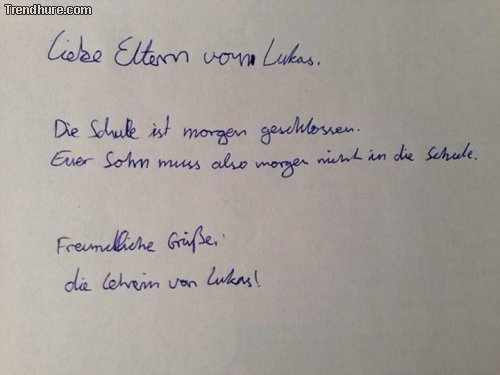 Trendhure.com
Liebe Eltern von Lukas.
Die Schule ist morgen geschlossen.
Euer Sohn muss also morgen nicht in die Schule.
Freundliche Grüße:
die Lehrein von Lukas!